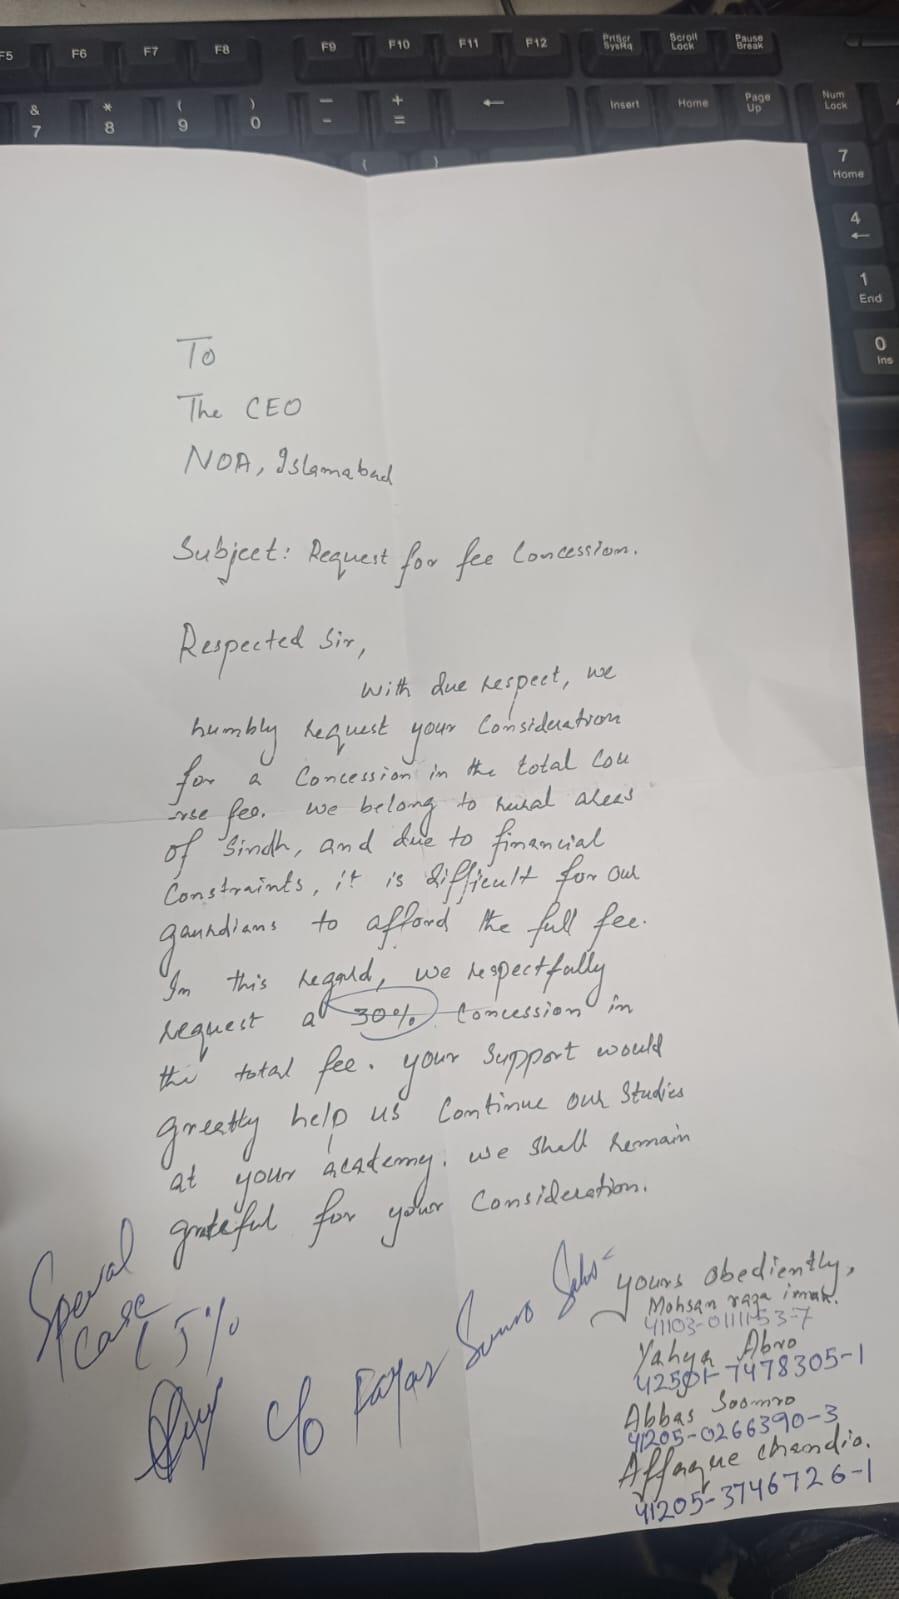 F5 F6 F7 F8 F9 F10 F11 F12 PrtScr SysRq Scroll Lock Pause Break
& 7 * 8 ( 9 ) 0 _ - + = ← Insert Home Page Up Num Lock
{ }
7 Home
4 ←
1 End
0 Ins
To
The CEO
NOA, Islamabad
Subject: Request for fee Concession.
Respected Sir,
With due respect, we
humbly request your Consideration
for a Concession in the total Cou
rse fee. we belong to rural areas
of Sindh, and due to financial
Constraints, it is difficult for our
gaurdians to afford the full fee.
In this regard, we respectfully
request a 30% Concession in
the total fee. your support would
greatly help us Continue our Studies
at your academy. we shall remain
grateful for your Consideration.
yours obediently,
Mohsan raza
41103-0111153-7
Yahya Abro
7478305-1
Abbas Soomro
41205-0266390-3
Affaque chandio.
41205-3746726-1
Special
Case
15%
c/o Soomro